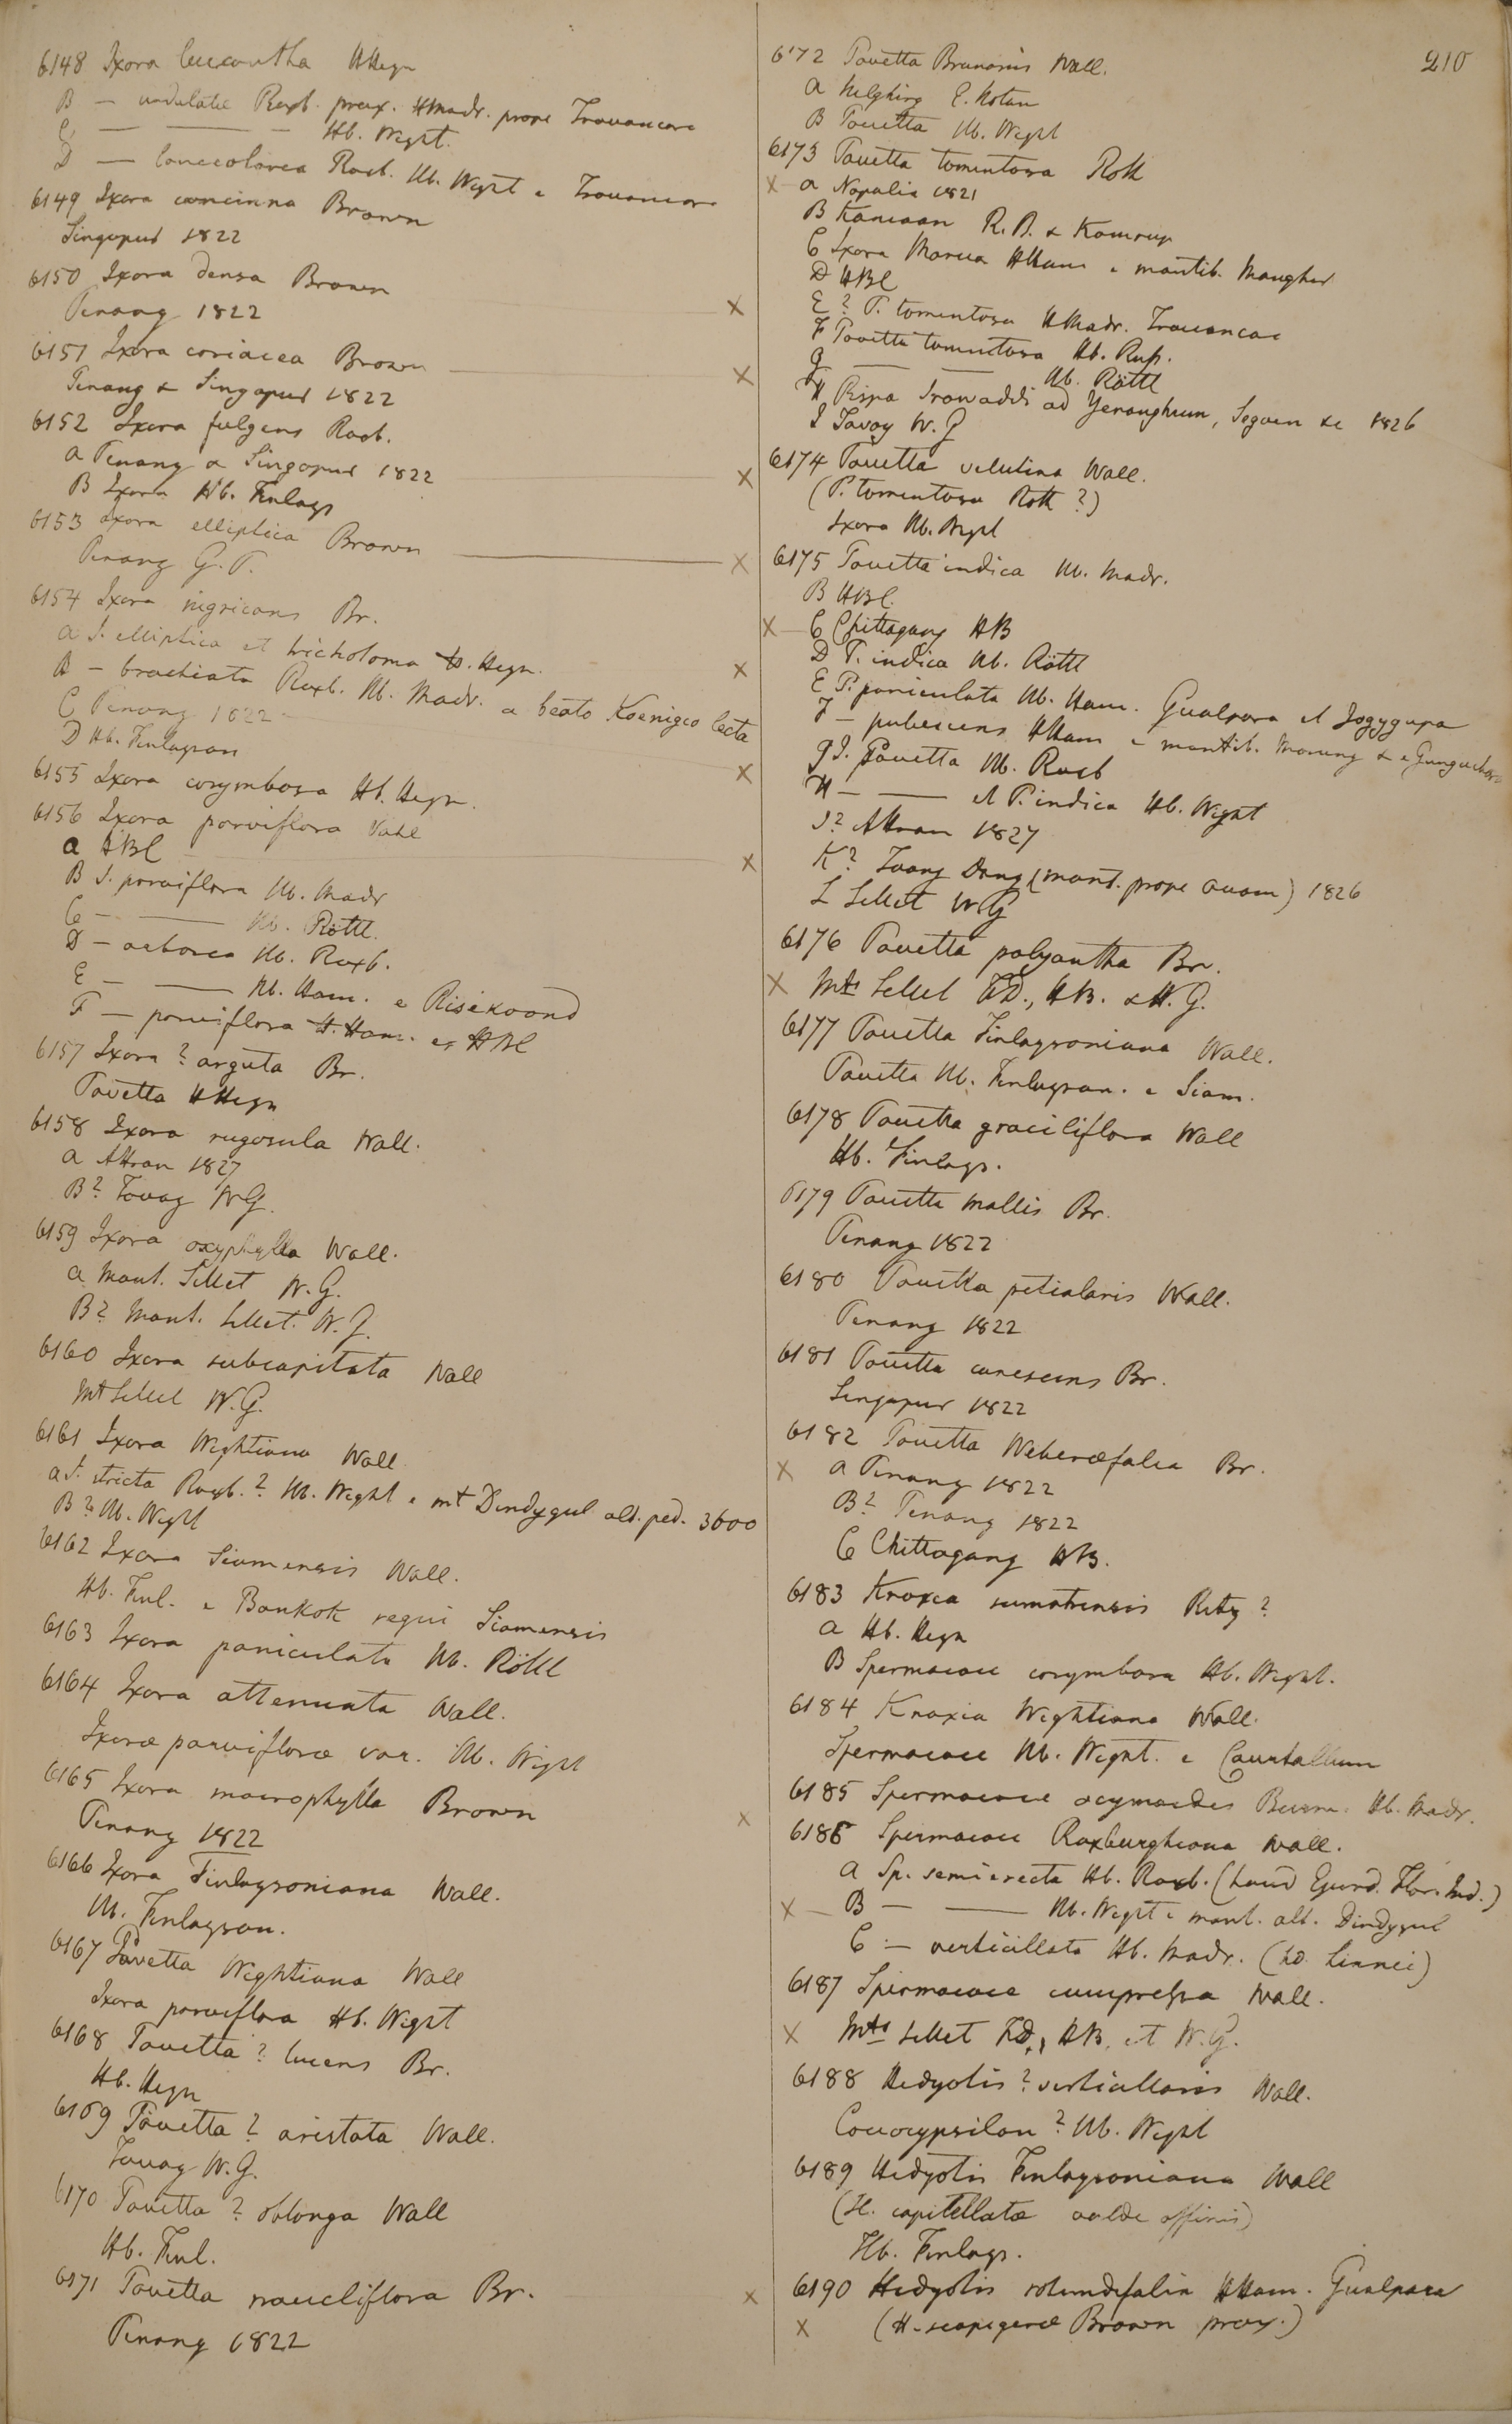 210
6148 Ixora leucantha HHeyn
B — undulatae Roxb. prox. HMadr. prope Travancore
C — — — Hb. Wight.
D — lanceolarea Roxb. Hb. Wight e Travancor
6149 Ixora concinna Brown
Singapur 1822
6150 Ixora densa Brown
Penang 1822 X
6151 Ixora coriacea Brown
Penang & Singapur 1822 X
6152 Ixora fulgens Roxb.
a Penang & Singapur 1822 X
B Ixora Hb. Finlays
6153 Ixora elliptica Brown
Penang G. P. X
6154 Ixora nigricans Br.
a I. elliptica et tricholoma H. Heyn.
B — brachiata Roxb. Hb. Madr. a beato Koenigio lecta X
C Penang 1822
D Hb. Finlayson
6155 Ixora corymbosa Hb. Heyn. X
6156 Ixora parviflora Vahl
a HBC X
B I. parviflora Hb. Madr
C — — Hb. Röttl.
D — arborea Hb. Roxb.
E — — Hb. Ham. e Risikoond
F — parviflora H. Ham. ex HBC
6157 Ixora ? arguta Br.
Pavetta HHeyn
6158 Ixora rugosula Wall.
a Attran 1827
B? Tavoy WG.
6159 Ixora oxyphylla Wall.
a Mont. Sillet W. G.
B? Mont. Sillet. W. G.
6160 Ixora subcapitata Wall
Mt Sillet W. G.
6161 Ixora Wightiana Wall
a I. stricta Roxb. ? Hb. Wight e mt Dindygul alt. ped. 3600
B? Hb. Wight
6162 Ixora Siamensis Wall.
Hb. Finl. e Bankok regni Siamensis
6163 Ixora paniculata Hb. Röttl
6164 Ixora attenuata Wall.
Ixorae parviflorae var. Hb. Wight
6165 Ixora macrophylla Brown
Penang 1822 X
6166 Ixora Finlaysoniana Wall.
Hb. Finlayson.
6167 Pavetta Wightiana Wall
Ixora parviflora Hb. Wight
6168 Pavetta ? lucens Br.
Hb. Heyn
6169 Pavetta ? aristata Wall.
Tavoy W. G.
6170 Pavetta ? oblonga Wall
Hb. Finl.
6171 Pavetta naucliflora Br. X
Penang 1822
6172 Pavetta Brunonis Wall.
a Nelghiry E. Noton
B Pavetta Hb. Wight
6173 Pavetta tomentosa Roth
X a Napalia 1821
B Kanaoan R. B. & Kamrup
C Ixora Marua HHam e montib. Monghir
D HBC
E? P. tomentosa HMadr. Travancor
F Pavetta tomentosa Hb. Russ.
G — — Hb. Röttl
H Ripa Irawaddi ad Yenanghuen, Segaen &c 1826
I Tavoy W. G
6174 Pavetta velutina Wall.
(P. tomentosa Roth ?)
Ixora Hb. Wight
6175 Pavetta indica Hb. Madr.
B HBC.
X — C Chittagong HB
D P. indica Hb. Röttl
E P. paniculata Hb. Ham. Gualpara et Jogygupa
F — pubescens HHam e montib. Morung &
G I. Pavetta Hb. Roxb
H — — et P. indica Hb. Wight
I? Attran 1827
K? Taong Dong (mont. prope Avam) 1826
L Sillet WG
6176 Pavetta polyantha Br.
X Mts Sillet FD., HB. & W. G.
6177 Pavetta Finlaysoniana Wall.
Pavetta Hb. Finlayson. e Siam.
6178 Pavetta graciliflora Wall
Hb. Finlays.
6179 Pavetta mollis Br.
Penang 1822
6180 Pavetta petiolaris Wall.
Penang 1822
6181 Pavetta canescens Br.
Singapur 1822
6182 Pavetta Weberaefolia Br.
X a Penang 1822
B? Penang 1822
C Chittagong HB.
6183 Knoxea sumatrensis Retz ?
a Hb. Heyn
B Spermacoce corymbosa Hb. Wight.
6184 Knoxia Wightiana Wall.
Spermacoce Hb. Wight. e Courtallum
6185 Spermacoce ocymoides Burm. Hb. Madr.
6186 Spermacoce Roxburghiana Wall.
a Sp. semierecta Hb. Roxb. (haud Ejusd. Flor. Ind.)
X — B — — Hb. Wight e mont. alt. Dindygul
C — verticillata Hb. Madr. (hd. Linnei)
6187 Spermacoce compressa Wall.
X Mts Sillet FD., HB. et W. G.
6188 Hedyotis ? verticillaris Wall.
Coccocypsilon ? Hb. Wight
6189 Hedyotis Finlaysoniana Wall
(H. capitellatae valde affinis)
Hb. Finlays.
6190 Hedyotis rotundifolia HHam. Gualpara
X (H. scapigerae Brown prox.)